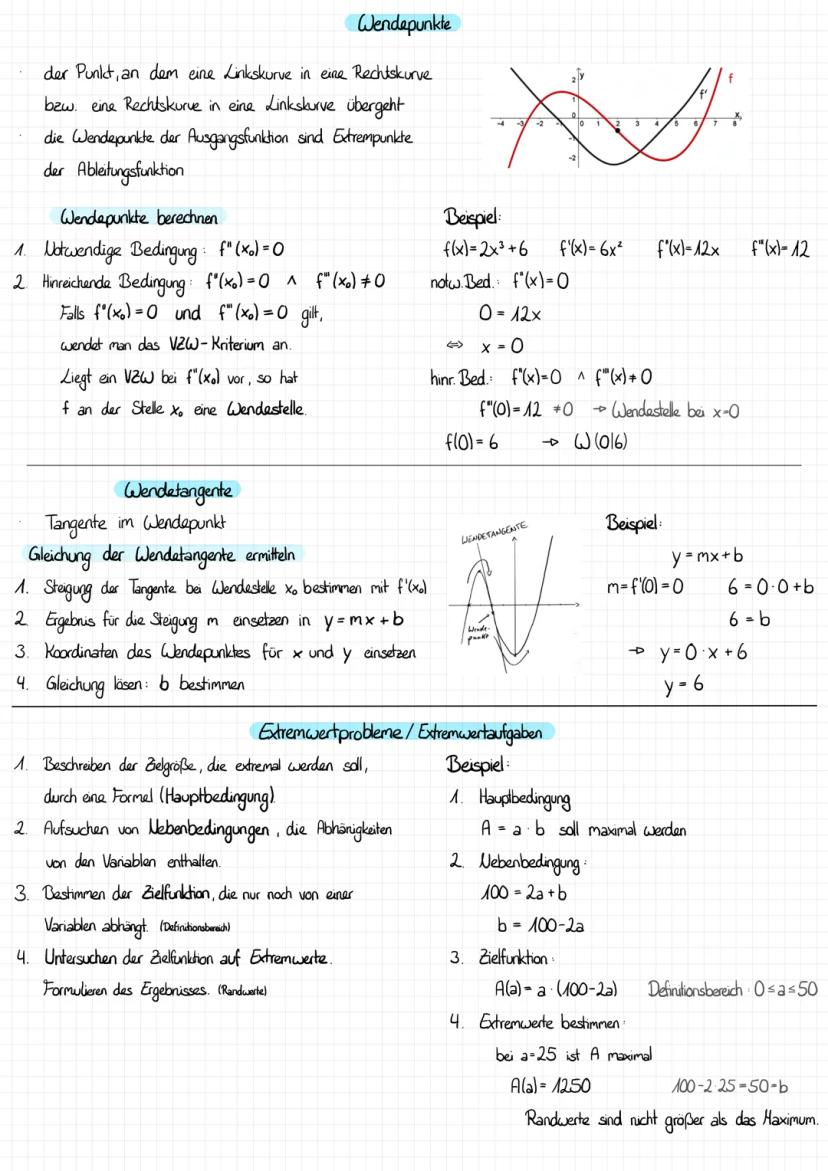 Wendepunkte
· der Punkt, an dem eine Linkskurve in eine Rechtskurve
bzw. eine Rechtskurve in eine Linkskurve übergeht
· die Wendepunkte der Ausgangsfunktion sind Extrempunkte
der Ableitungsfunktion
y
f
f'
x
2
1
0
-4 -3 -2 -1 0 1 2 3 4 5 6 7 8
-1
-2
Wendepunkte berechnen
1. Notwendige Bedingung: f"(x₀) = 0
2. Hinreichende Bedingung: f"(x₀) = 0 ∧ f'''(x₀) ≠ 0
Falls f"(x₀) = 0 und f'''(x₀) = 0 gilt,
wendet man das VZW-Kriterium an.
Liegt ein VZW bei f"(x₀) vor, so hat
f an der Stelle x₀ eine Wendestelle.
Beispiel:
f(x) = 2x³ + 6 f'(x) = 6x² f"(x) = 12x f'''(x) = 12
notw. Bed.: f"(x) = 0
0 = 12x
⇔ x = 0
hinr. Bed.: f"(x) = 0 ∧ f'''(x) ≠ 0
f'''(0) = 12 ≠ 0 → Wendestelle bei x=0
f(0) = 6 → W(0|6)
Wendetangente
· Tangente im Wendepunkt
Gleichung der Wendetangente ermitteln
1. Steigung der Tangente bei Wendestelle x₀ bestimmen mit f'(x₀)
2. Ergebnis für die Steigung m einsetzen in y = mx + b
3. Koordinaten des Wendepunktes für x und y einsetzen
4. Gleichung lösen: b bestimmen
WENDETANGENTE
Wende-
punkt
Beispiel:
y = mx + b
m = f'(0) = 0 6 = 0 · 0 + b
6 = b
→ y = 0 · x + 6
y = 6
Extremwertprobleme / Extremwertaufgaben
1. Beschreiben der Zielgröße, die extremal werden soll,
durch eine Formel (Hauptbedingung).
2. Aufsuchen von Nebenbedingungen, die Abhänigkeiten
von den Variablen enthalten.
3. Bestimmen der Zielfunktion, die nur noch von einer
Variablen abhängt. (Definitionsbereich)
4. Untersuchen der Zielfunktion auf Extremwerte.
Formulieren des Ergebnisses. (Randwerte)
Beispiel:
1. Hauptbedingung
A = a · b soll maximal werden
2. Nebenbedingung:
100 = 2a + b
b = 100 - 2a
3. Zielfunktion:
A(a) = a · (100 - 2a) Definitionsbereich: 0 ≤ a ≤ 50
4. Extremwerte bestimmen:
bei a = 25 ist A maximal
A(a) = 1250 100 - 2 · 25 = 50 = b
Randwerte sind nicht größer als das Maximum.